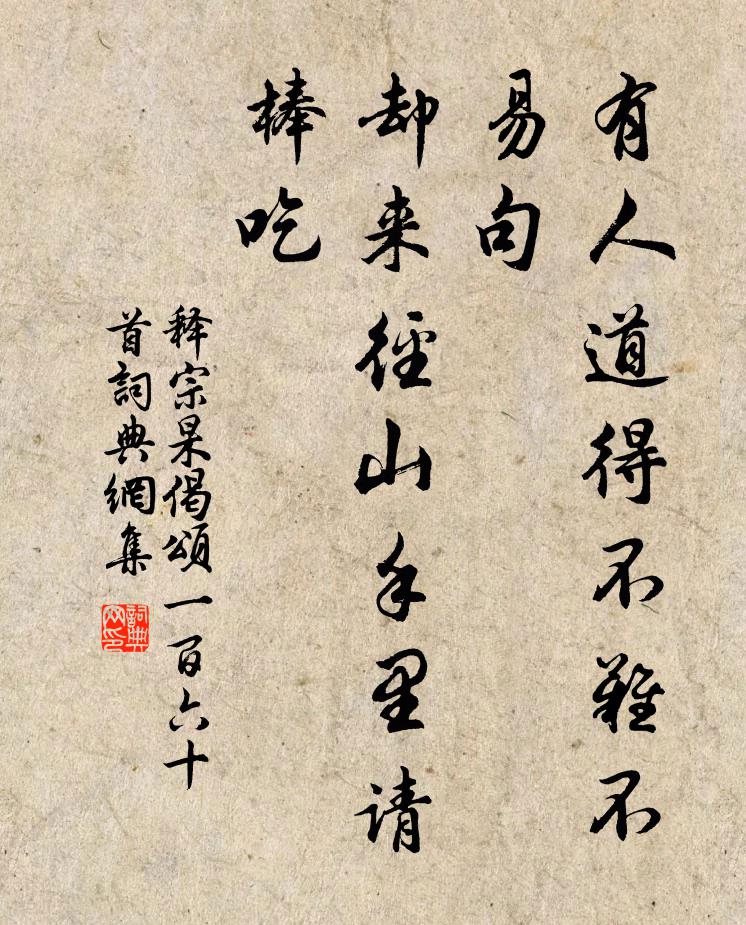 有人道得不难不
易句
却来径山手里请
棒吃
释宗杲偈頌一百六十
首詞典網集
詞典網印